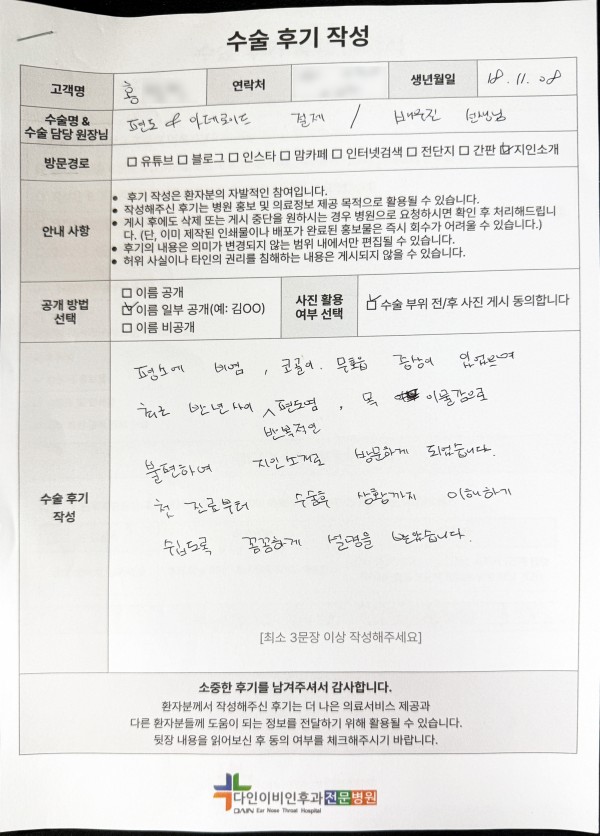 수술 후기 작성
고객명 홍 연락처 생년월일 18.11.08
수술명 &
수술 담당 원장님
편도 & 아데노이드 절제 / 선생님
방문경로 □ 유튜브 □ 블로그 □ 인스타 □ 맘카페 □ 인터넷검색 □ 전단지 □ 간판 ☑ 지인소개
안내 사항
• 후기 작성은 환자분의 자발적인 참여입니다.
• 작성해주신 후기는 병원 홍보 및 의료정보 제공 목적으로 활용될 수 있습니다.
• 게시 후에도 삭제 또는 게시 중단을 원하시는 경우 병원으로 요청하시면 확인 후 처리해드립니
다. (단, 이미 제작된 인쇄물이나 배포가 완료된 홍보물은 즉시 회수가 어려울 수 있습니다.)
• 후기의 내용은 의미가 변경되지 않는 범위 내에서만 편집될 수 있습니다.
• 허위 사실이나 타인의 권리를 침해하는 내용은 게시되지 않을 수 있습니다.
공개 방법
선택
□ 이름 공개
☑ 이름 일부 공개(예: 김OO)
□ 이름 비공개
사진 활용
여부 선택
☑ 수술 부위 전/후 사진 게시 동의합니다
수술 후기
작성
평소에 비염, 코골이, 무호흡 증상이 있었으며
최근 반년사이 반복적인 편도염, 목 이물감으로
불편하여 지인소개로 방문하게 되었습니다.
첫 진료부터 수술후 상황까지 이해하기
쉽도록 꼼꼼하게 설명을 받았습니다.
[최소 3문장 이상 작성해주세요]
소중한 후기를 남겨주셔서 감사합니다.
환자분께서 작성해주신 후기는 더 나은 의료서비스 제공과
다른 환자분들께 도움이 되는 정보를 전달하기 위해 활용될 수 있습니다.
뒷장 내용을 읽어보신 후 동의 여부를 체크해주시기 바랍니다.
다인이비인후과전문병원
DAIN Ear Nose Throat Hospital